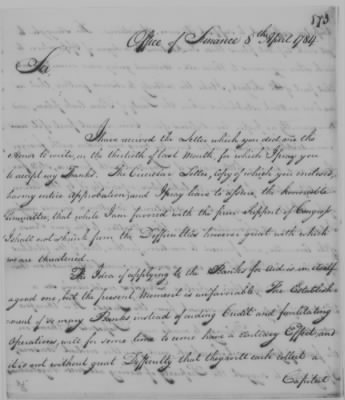 573
Office of Finance 8th April 1784
Sir
I have received the Letter which you did me the
Honor to write, on the thirtieth of last Month, for which I pray you
to accept my Thanks. The Circular Letter, copy of which you enclosed,
has my entire Approbation and I pray leave to assure the honorable
Committee, that while I am favored with the firm Support of Congress
I shall not shrink from the Difficulties however great with which
we are threatened.
The Idea of applying to the Banks for aid is in itself
a good one, but the present Moment is unfavorable. The Establish
ment of so many Banks instead of aiding Credit and facilitating
Operations, will for some time to come have a contrary Effect, and
it is not without great Difficulty that they will each collect a
Capital